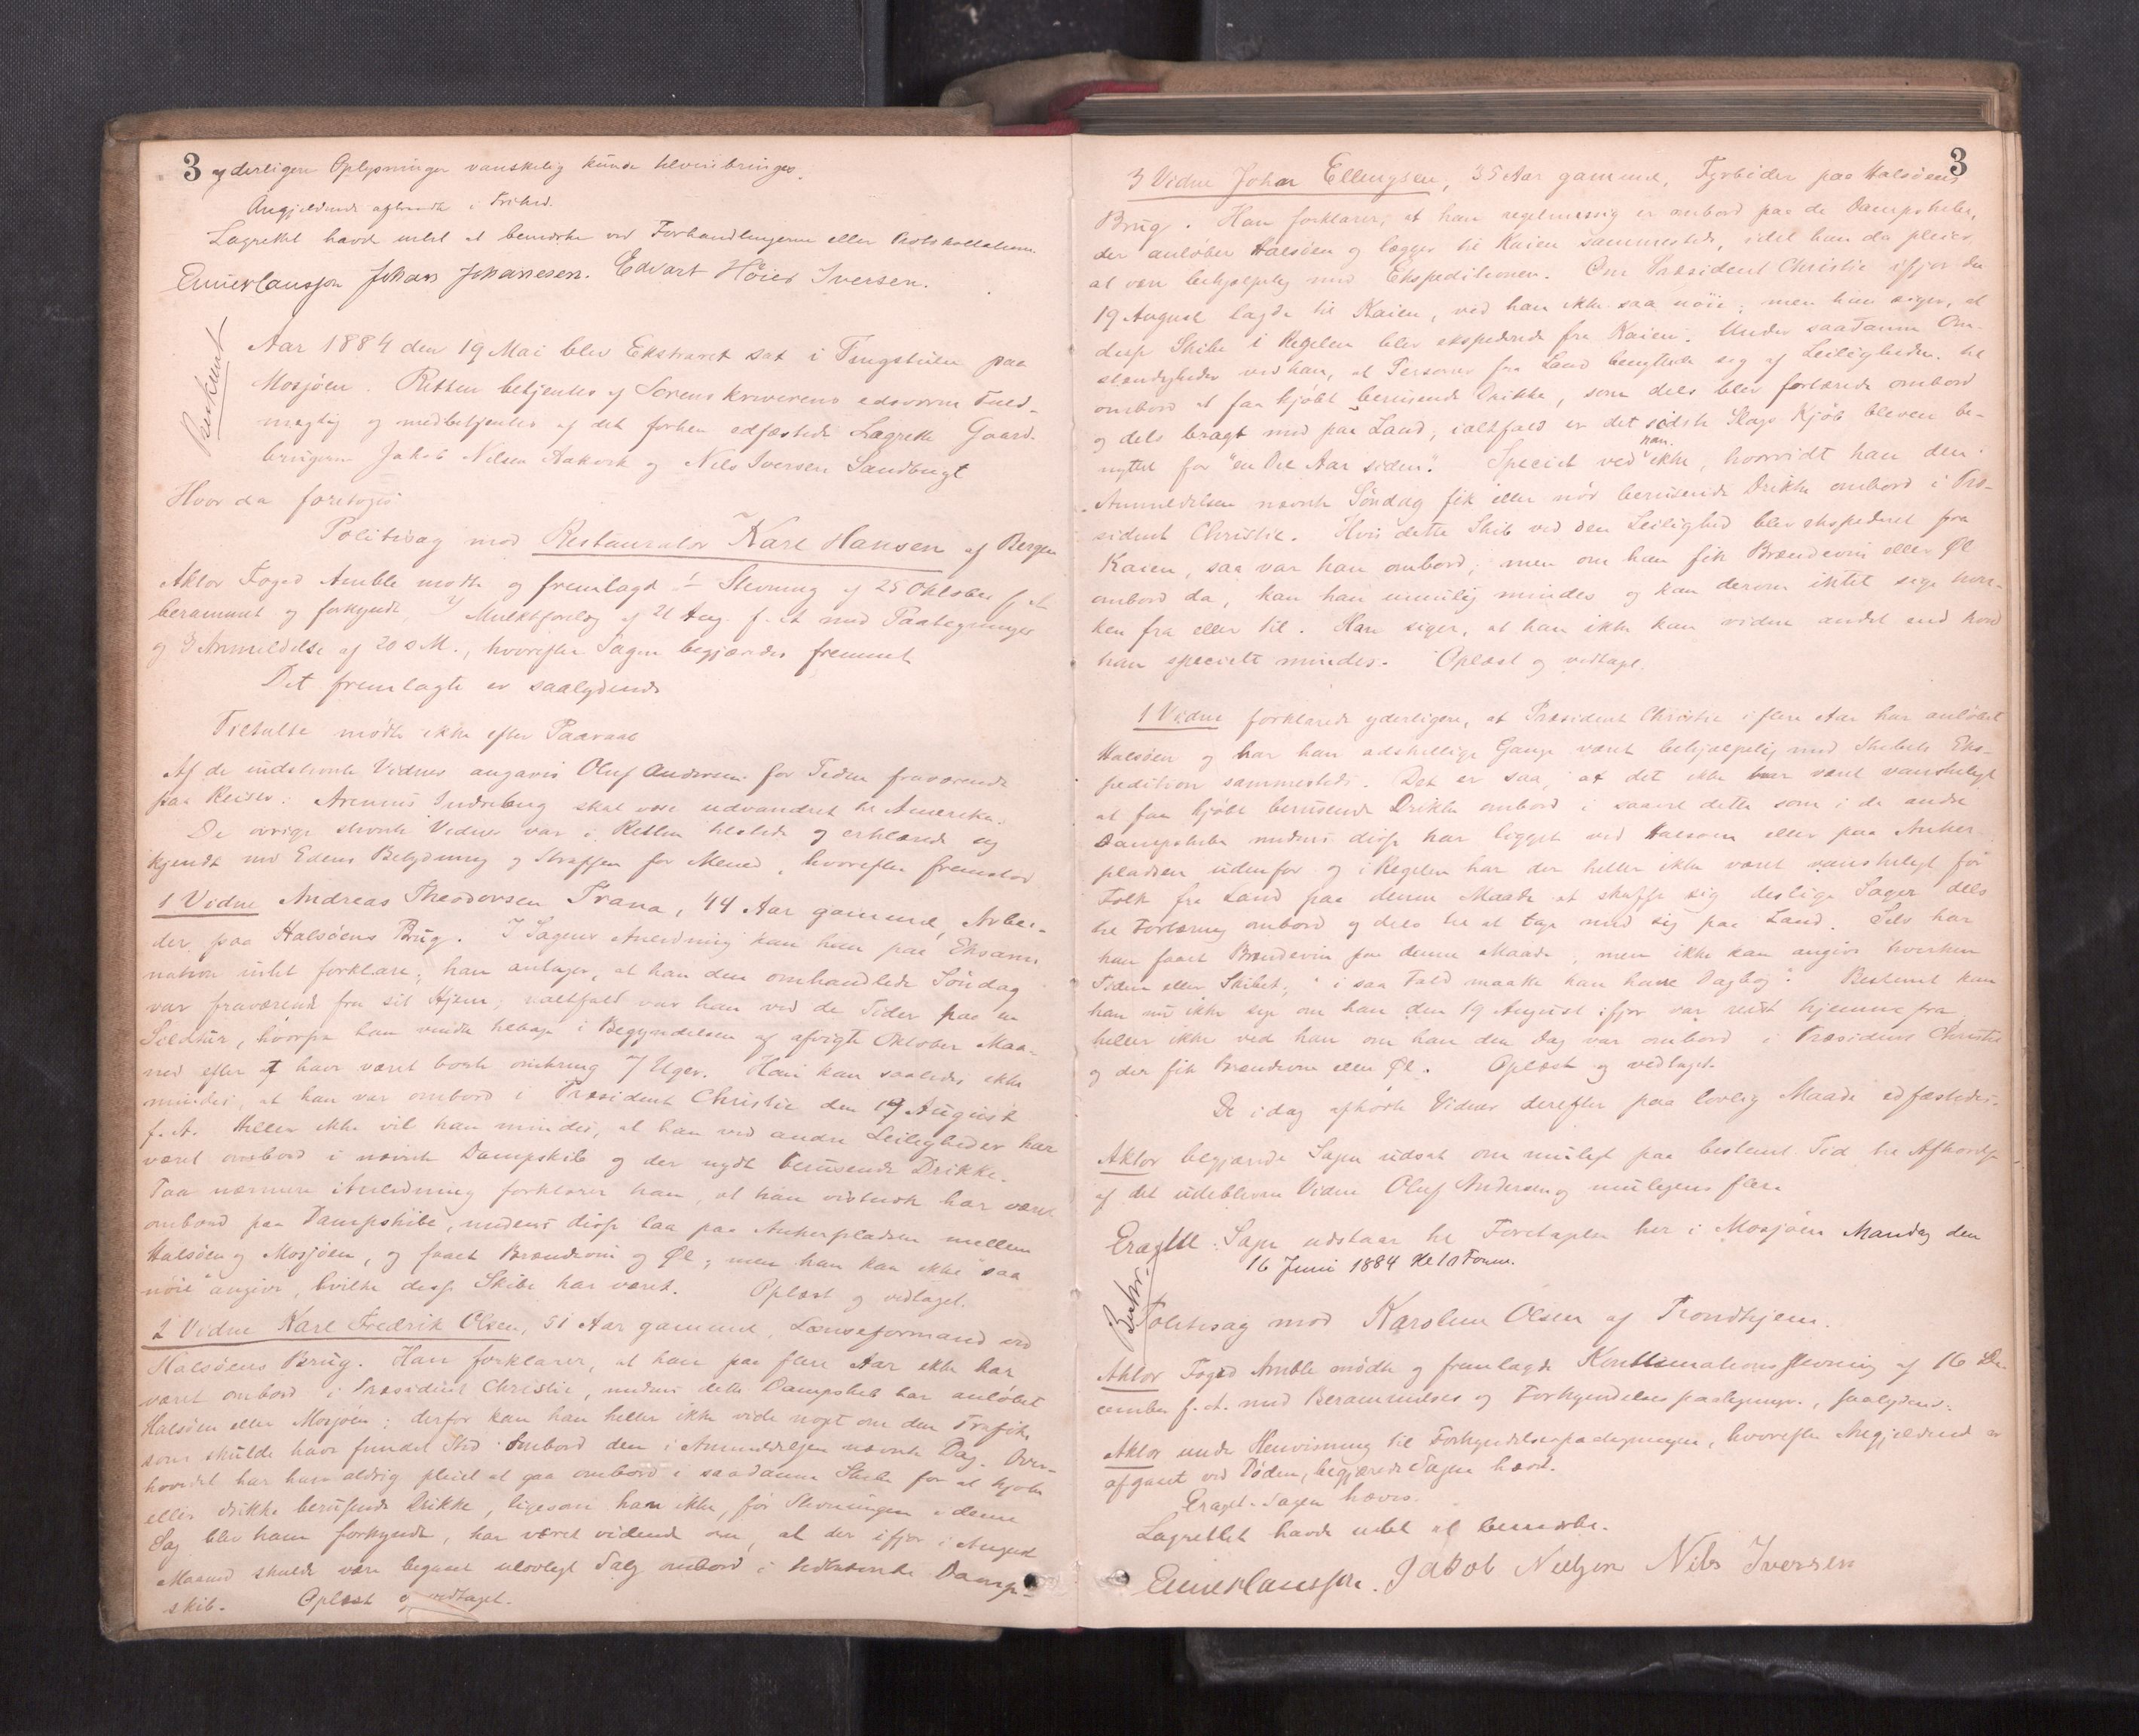 3
yderligere Oplysninger vanskelig kunde tilveiebringes.
Angjældende aftraadte i Frihed.
Lagrettet havde intet at bemærke ved Forhandlingerne eller Protokollationen
Johan Johanesen. Edvart Höier Iversen.
Beskrevet
Aar 1884 den 19 Mai blev Ekstraret sat i Tingstuen paa
Mosjöen. Retten betjentes af Sorenskriverens edsvorne Fuld-
mægtig og medbetjentes af det forhen edfæstede Lagrette Gaard-
brugerne Jakob Nilsen Aakvik og Nils Iversen Sandbugt
Hvor da foretoges
Politisag mod Restauratör Karl Hansen af Bergen
Aktor Foged Amble mødte og fremlagde 1 Stevning af 25 Oktober f. A.
berammet og forkyndt 2 Mulktforelæg af 21 Aug. f. A. med Paategninger
og 3 Anmeldelse af 20 s. M., hvorefter Sagen begjæredes fremmet
Det fremlagte er saalydende
Tiltalte mødte ikke efter Paaraab
Af de indstevnte Vidner angaves Oluf Andersen for Tiden fraværende
paa Reiser. Indreberg skal være udvandret til Amerika.
De øvrige stevnte Vidner var i Retten tilstede og erklærede sig
kjendt med Edens Betydning og Straffen for Mened, hvorefter fremstod
1 Vidne Andreas Theodorsen Trana, 44 Aar gammel, Arbei-
der paa Halsöens Brug. I Sagens Anledning kan han paa Eksami-
nation intet forklare; han antager, at han den omhandlede Söndag
var fraværende fra sit Hjem; ialtfald var han ved de Tider paa en
Sildtur, hvorfra han vendte tilbage i Begyndelsen af afvigte Oktober Maa-
ned efter at have været borte omkring 7 Uger. Han kan saaledes ikke
mindes, at han var ombord i Præsident Christie den 19 August
f. A. Heller ikke vil han mindes, at han ved andre Leiligheder har
været ombord i nævnte Dampskib og der nydt berusende Drikke.
Paa nærmere Anledning forklarer han, at han vistnok har været
ombord paa Dampskibe, medens disse laa paa Ankerpladsen mellem
Halsöen og Mosjöen, og faaet Brændevin og Øl; men han kan ikke "saa
nöie" angive, hvilke disse Skibe har været. Oplæst og vedtaget.
2 Vidne Karl Fredrik Olsen, 51 Aar gammel, Lænseformand ved
Halsöens Brug. Han forklarer, at han paa flere Aar ikke har
været ombord i Præsident Christie, medens dette Dampskib har anløbet
Halsöen eller Mosjöen; derfor kan han heller ikke vide noget om den Trafik,
som skulde have fundet Sted ombord den i Anmeldelsen nævnte Dag. Over-
hovedet har han aldrig pleiet at gaa ombord i saadanne Skibe for at kjøbe
eller drikke berusende Drikke, ligesom han ikke, før Stevningen i denne
Sag blev ham forkyndt, har været vidende om, at der ifjor i August
Maaned skulde være begaaet ulovligt Salg ombord i bedkomende Damp-
skib. Oplæst og vedtaget.
3
3 Vidne Johan Ellingsen, 35 Aar gammel, Fyrböder paa Halsöens
Brug. Han forklarer, at han regelmæssig er ombord paa de Dampskibe,
der anløber Halsöen og lægger til Kaien sammesteds, idet han da pleier
at være behjælpelig med Ekspeditionen. Om Præsident Christie ifjor den
19 August lagde til Kaien, ved han ikke saa nöie; men han siger, at
disse Skibe i Regelen blev ekspederede fra Kaien. Under saadanne Om-
stændigheder ved han, at Personer fra Land benyttede sig af Leiligheden til
ombord at faa kjöbt berusende Drikke, som dels blev fortæret ombord
og dels bragt med paa Land; ialtfald er det sidste Slags Kjöb bleven be-
nyttet for "en Del Aar siden". Specielt ved han ikke, hvorvidt han den i
Anmeldelsen nævnte Söndag fik eller nød berusende Drikke ombord i Præ-
sident Christie. Hvis dette Skib ved den Leilighed blev ekspederet fra
Kaien, saa var han ombord; men om han fik Brændevin eller Øl
ombord da, kan han umulig mindes og kan derom intet sige hver-
ken fra eller til. Han siger, at han ikke kan vidne andet end hvad
han specielt mindes. Oplæst og vedtaget.
1 Vidne forklarede yderligere, at Præsident Christie i flere Aar har anløbet
Halsöen og har han adskillige Gange været behjælpelig med Skibets Eks-
pedition sammesteds. Det er saa, at det ikke har været vanskeligt
at faa kjöbt berusende Drikke ombord i saavel dette som i de andre
Dampskibe medens disse har ligget ved Halsöen eller paa Anker-
pladsen udenfor og i Regelen har der heller ikke været vanskeligt for
Folk fra Land paa denne Maade at skaffe sig deslige Sager dels
til Fortæring ombord og dels til at tage med sig paa Land. Selv har
han faaet Brændevin paa denne Maade, men ikke kan angive hverken
Tiden eller Skibet; "i saa Fald maatte han have Dagbog". Bestemt kan
han nu ikke sige om han den 19 August ifjor var reist hjemme fra
heller ikke ved han om han den Dag var ombord i Præsident Christie
og der fik Brændevin eller Øl. Oplæst og vedtaget.
De idag afhørte Vidner derefter paa lovlig Maade edfæstedes.
Aktor begjærede Sagen udsat om muligt paa bestemt Tid til Afhørelse
af det udeblevne Vidne Oluf Andersen og muligens flere
Eragtet: Sagen udstaar til Foretagelse her i Mosjöen Mandag den
16 Juni 1884 Kl 10 Form.
Beskr.
Politisag mod Karoline Olsen af Trondhjem.
Aktor Foged Amble mødte og fremlagde Kontinuationsstevning af 16 De-
cember f. A. med Berammelses og Forkyndelsespaategninger, saalydende:
Aktor under Henvisning til Forkyndelsespaategningen, hvorefter Angjældende er
afgaaet ved Døden, begjærede Sagen hævet.
Eragtet: Sagen hæves.
Lagrettet havde intet at bemærke.
Jakob Nielsen Nils Iversen